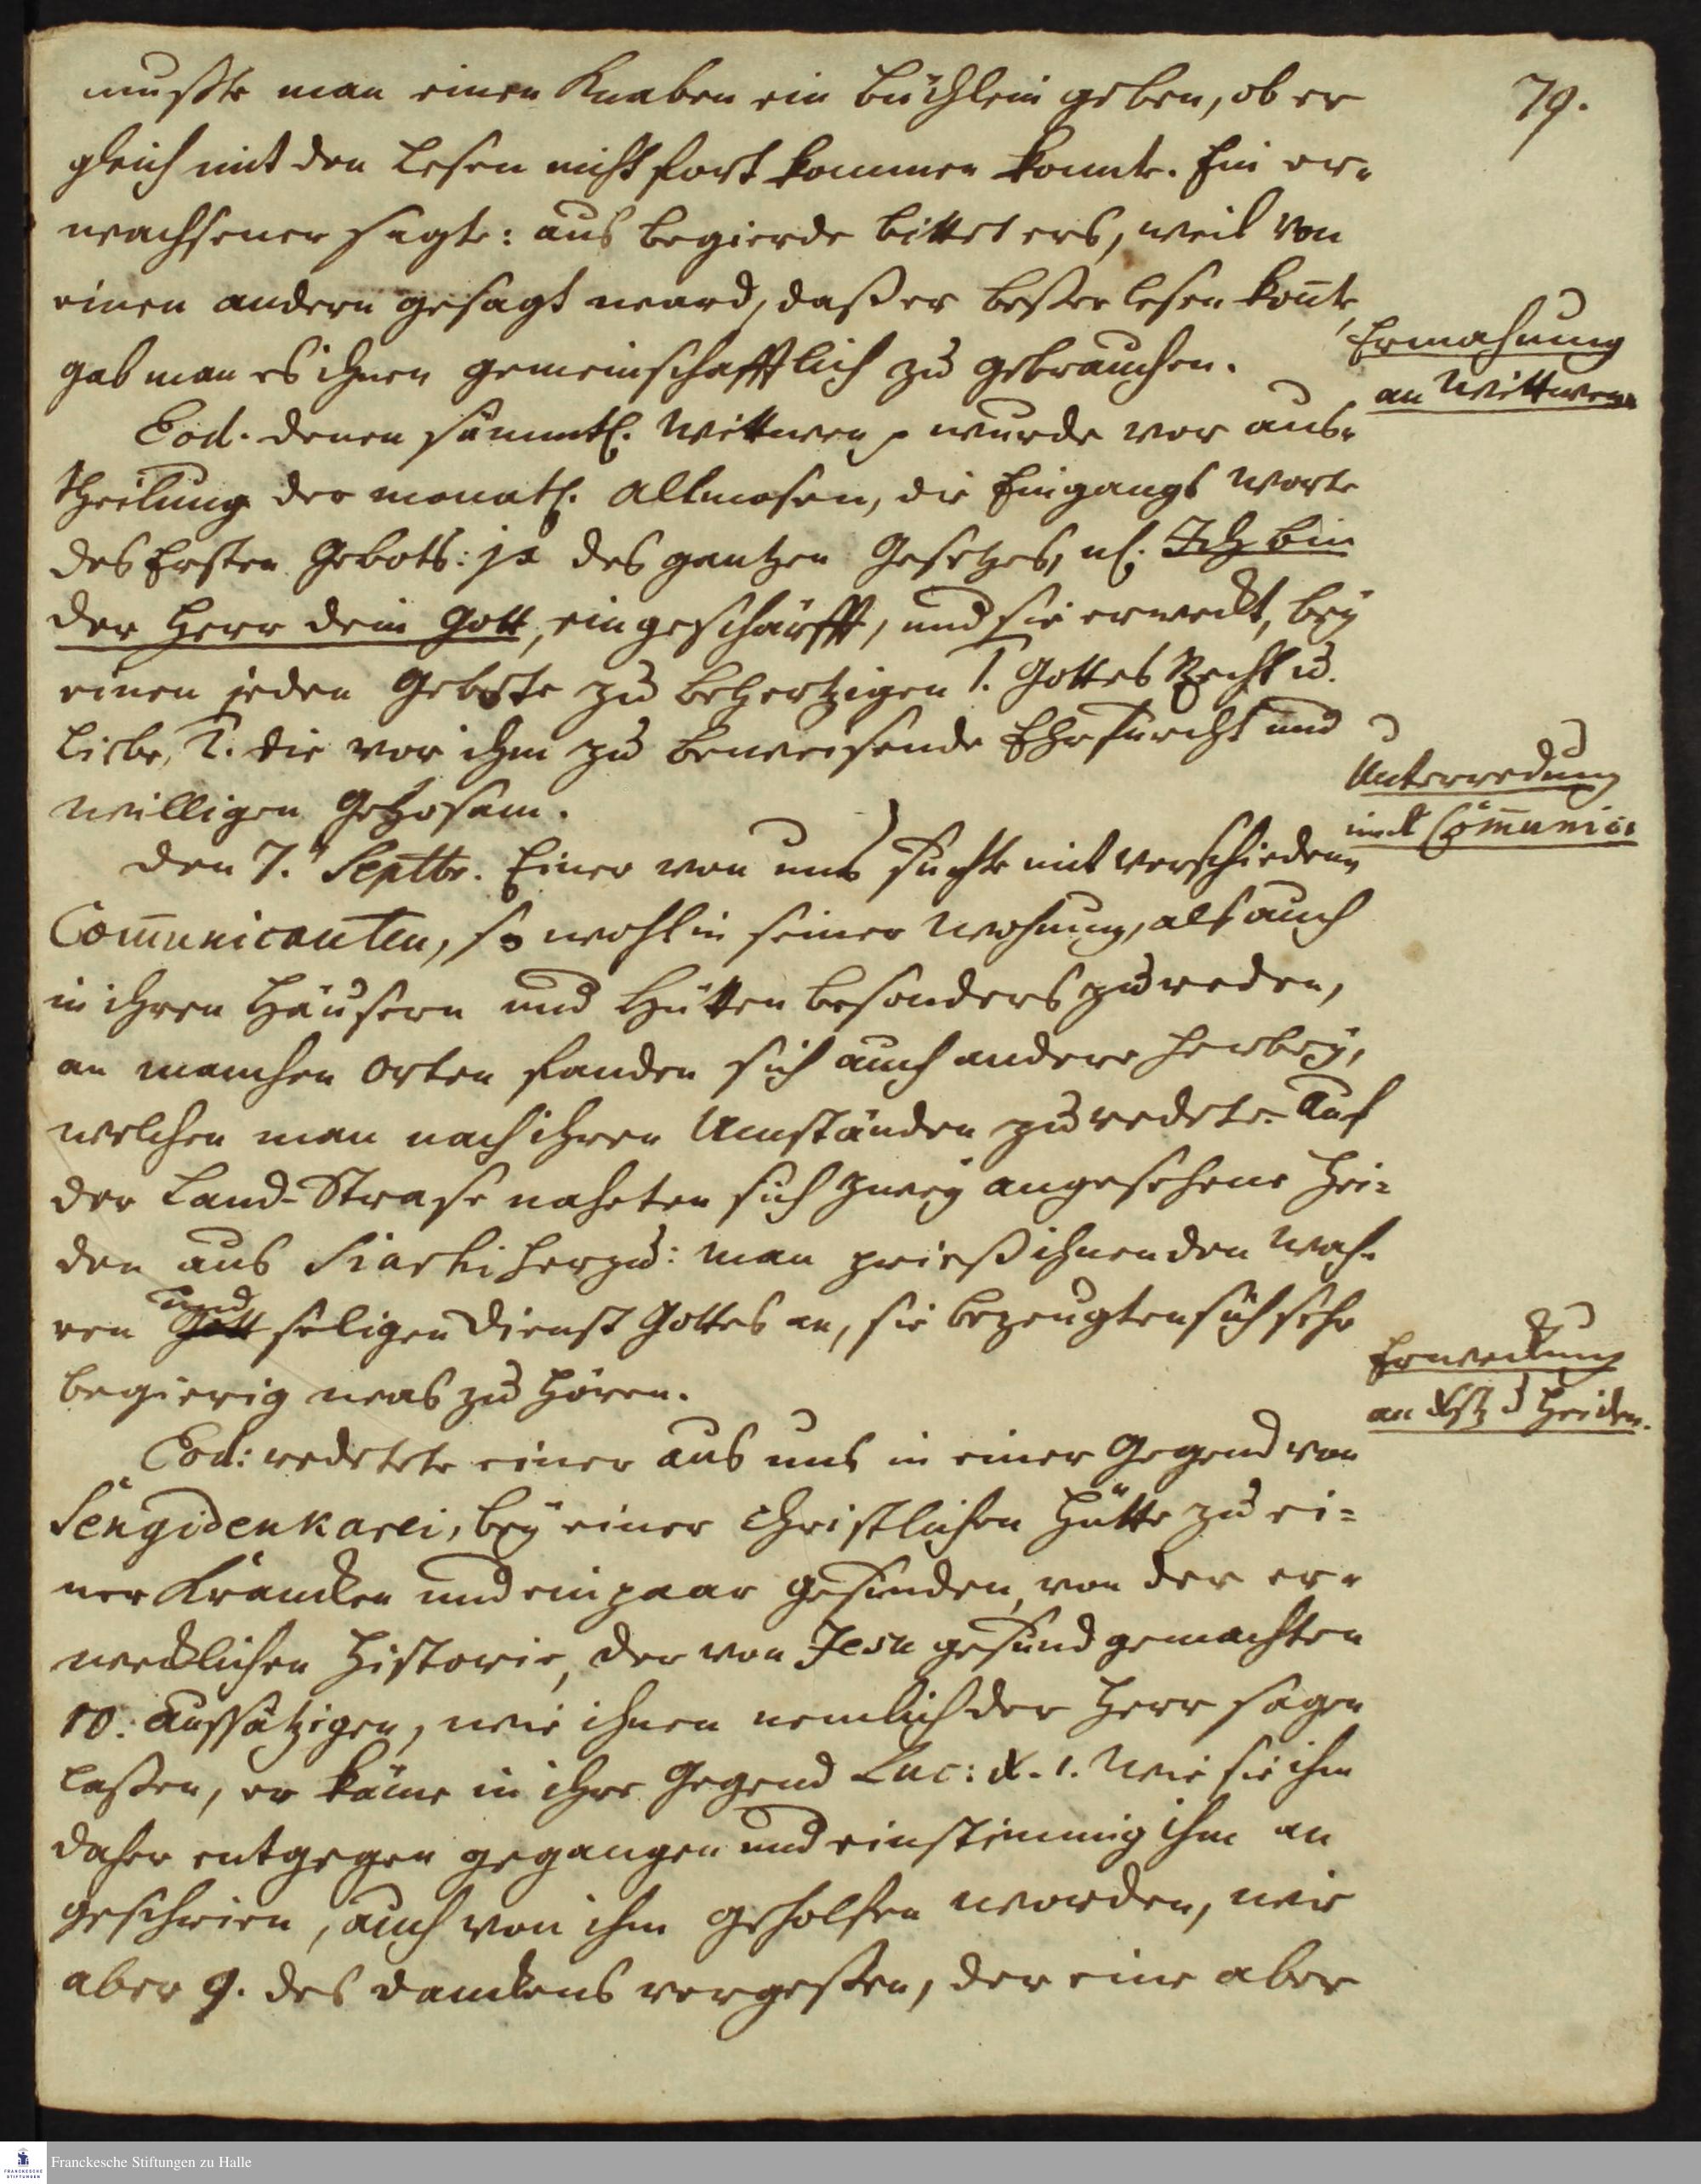 79.
mußte man einen Knaben ein büchlein geben, ob er
gleich mit den Lesen nicht fort kommen konnte. Ein er-
wachsener sagte: aus begierde bittet ers, weil von
einen andern gesagt ward, daß er beßer lesen kon̄te,
gab man es ihnen gemeinschafftlich zu gebrauchen.
Ermahnung
an Wittwen
Eod. denen sämmtl. Wittwen wurde vor aus-
theilung der monatl. Allmosen, die Eingangs Worte
des Ersten Gebots: ja des gantzen Gesetzes, nl. Ich bin
der Herr dein Gott, eingeschärfft, und sie erweckt, bey
einen jeden Gebote zu behertzigen 1. Gottes Recht u.
Liebe, 2. die vor ihm zu beweisende Ehrfurcht und
willigen Gehorsam.
Unterredung
mit Com̄unic:
den 7. Septbr. Einer von uns suchte mit verschiedenen
Com̄unicanten, so wohl in seiner Wohnung, als auch
in ihren Häusern und Hütten besonders zu reden,
an manchen Orten fanden sich auch andere herbey,
welchen man nach ihren Umständen zu redete. Auf
der Land-Strase naheten sich zwey angesehene Hei-
den aus Siarhi herzu: man prieß ihnen den wah-
ren Gott und seligen Dienst Gottes an, sie bezeugten sich sehr
begierig was zu hören.
Erweckung
an Xst. u Heiden.
Eod: redetete einer aus uns in einer Gegend von
Sengidenkarei, bey einer Christlichen Hütte zu ei-
ner Krancken und ein paar gesunden, von der er-
wecklichen Historie, der von Jesu gesund gemachten
10. Aussätzigen, wie ihnen nemlich der Herr sagen
laßen, er käme in ihre Gegend Luc: X. 1. Wie sie ihm
daher entgegen gegangen und einstimmig ihm an
geschrien, auch von ihm geholfen worden, wie
aber 9. des danckens vergeßen, der eine aber
Franckesche Stiftungen zu Halle